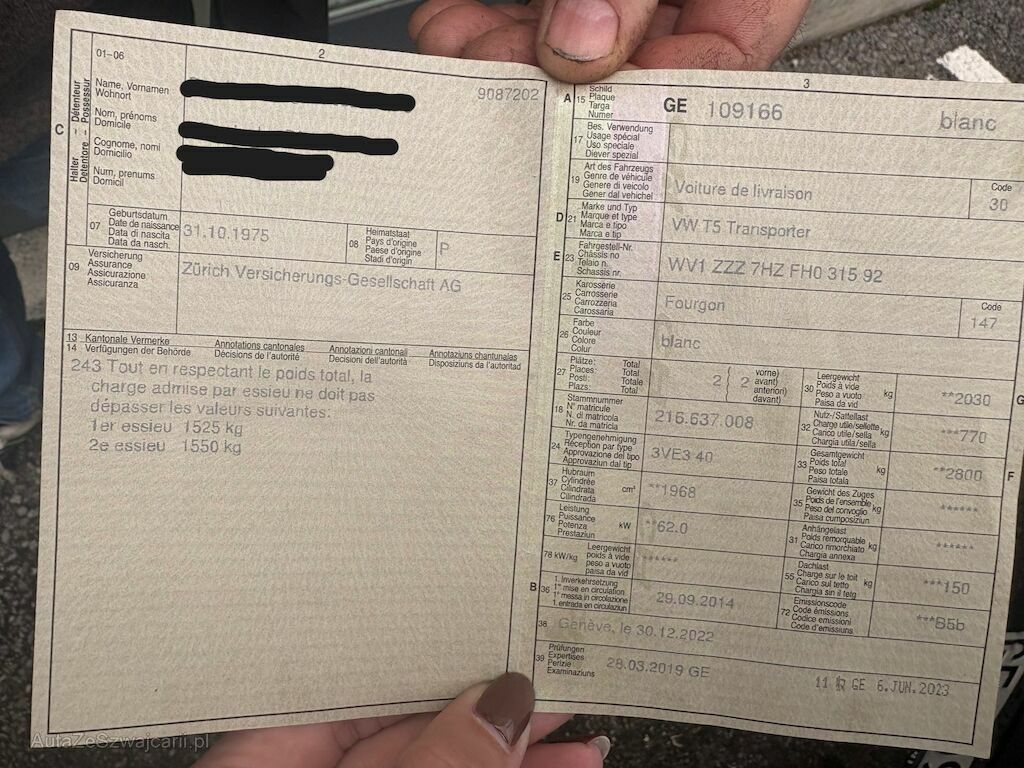 2
01-06
C
Halter – Détenteur
Detentore – Possessur
Name, Vornamen
Wohnort
Nom, prénoms
Domicile
Cognome, nomi
Domicilio
Num, prenums
Domicil
9087202
07
Geburtsdatum
Date de naissance
Data di nascita
Data da nasch.
31.10.1975
08
Heimatstaat
Pays d'origine
Paese d'origine
Stadi d'origin
P
09
Versicherung
Assurance
Assicurazione
Assicuranza
Zürich Versicherungs-Gesellschaft AG
13 Kantonale Vermerke Annotations cantonales Annotazioni cantonali Annotaziuns chantunalas
14 Verfügungen der Behörde Décisions de l'autorité Decisioni dell'autorità Disposiziuns da l'autoritad
243 Tout en respectant le poids total, la
charge admise par essieu ne doit pas
dépasser les valeurs suivantes:
1er essieu 1525 kg
2e essieu 1550 kg
3
A 15
Schild
Plaque
Targa
Numer
GE 109166 blanc
17
Bes. Verwendung
Usage spécial
Uso speciale
Diever spezial
19
Art des Fahrzeugs
Genre de véhicule
Genere di veicolo
Gener dal vehichel
Voiture de livraison
Code
30
D 21
Marke und Typ
Marque et type
Marca e tipo
Marca e tip
VW T5 Transporter
E 23
Fahrgestell-Nr.
Châssis no
Telaio n.
Schassis nr.
WV1 ZZZ 7HZ FH0 315 92
25
Karosserie
Carrosserie
Carrozzeria
Carossaria
Fourgon
Code
147
26
Farbe
Couleur
Colore
Colur
blanc
27
Plätze: Total
Places: Total
Posti: Totale
Plazs: Total
2 { 2
vorne)
avant)
anteriori)
davant)
30
Leergewicht
Poids à vide
Peso a vuoto
Paisa da vid
kg
**2030
G
18
Stammnummer
N° matricule
N. di matricola
Nr. da matricla
216.637.008
32
Nutz-/Sattellast
Charge utile/sellette
Carico utile/sella
Chargia utila/sella
kg
***770
24
Typengenehmigung
Réception par type
Approvazione del tipo
Approvaziun dal tip
3VE3 40
33
Gesamtgewicht
Poids total
Peso totale
Paisa totala
kg
**2800
F
37
Hubraum
Cylindrée
Cilindrata
Cilindrada
cm³
**1968
35
Gewicht des Zuges
Poids de l'ensemble
Peso del convoglio
Paisa cumposiziun
kg
******
76
Leistung
Puissance
Potenza
Prestaziun
kW
**62.0
31
Anhängelast
Poids remorquable
Carico rimorchiato
Chargia annexa
kg
******
78 kW/kg
Leergewicht
poids à vide
peso a vuoto
paisa da vid
******
55
Dachlast
Charge sur le toit
Carico sul tetto
Chargia sin il tetg
kg
***150
B 36
1. Inverkehrsetzung
1re mise en circulation
1a messa in circolazione
1. entrada en circulaziun
29.09.2014
72
Emissionscode
Code émissions
Codice emissioni
Code d'emissiuns
***B5b
38
Genève, le 30.12.2022
39
Prüfungen
Expertises
Perizie
Examinaziuns
28.03.2019 GE
GE 6.JUN.2023
AutaZeSzwajcarii.pl